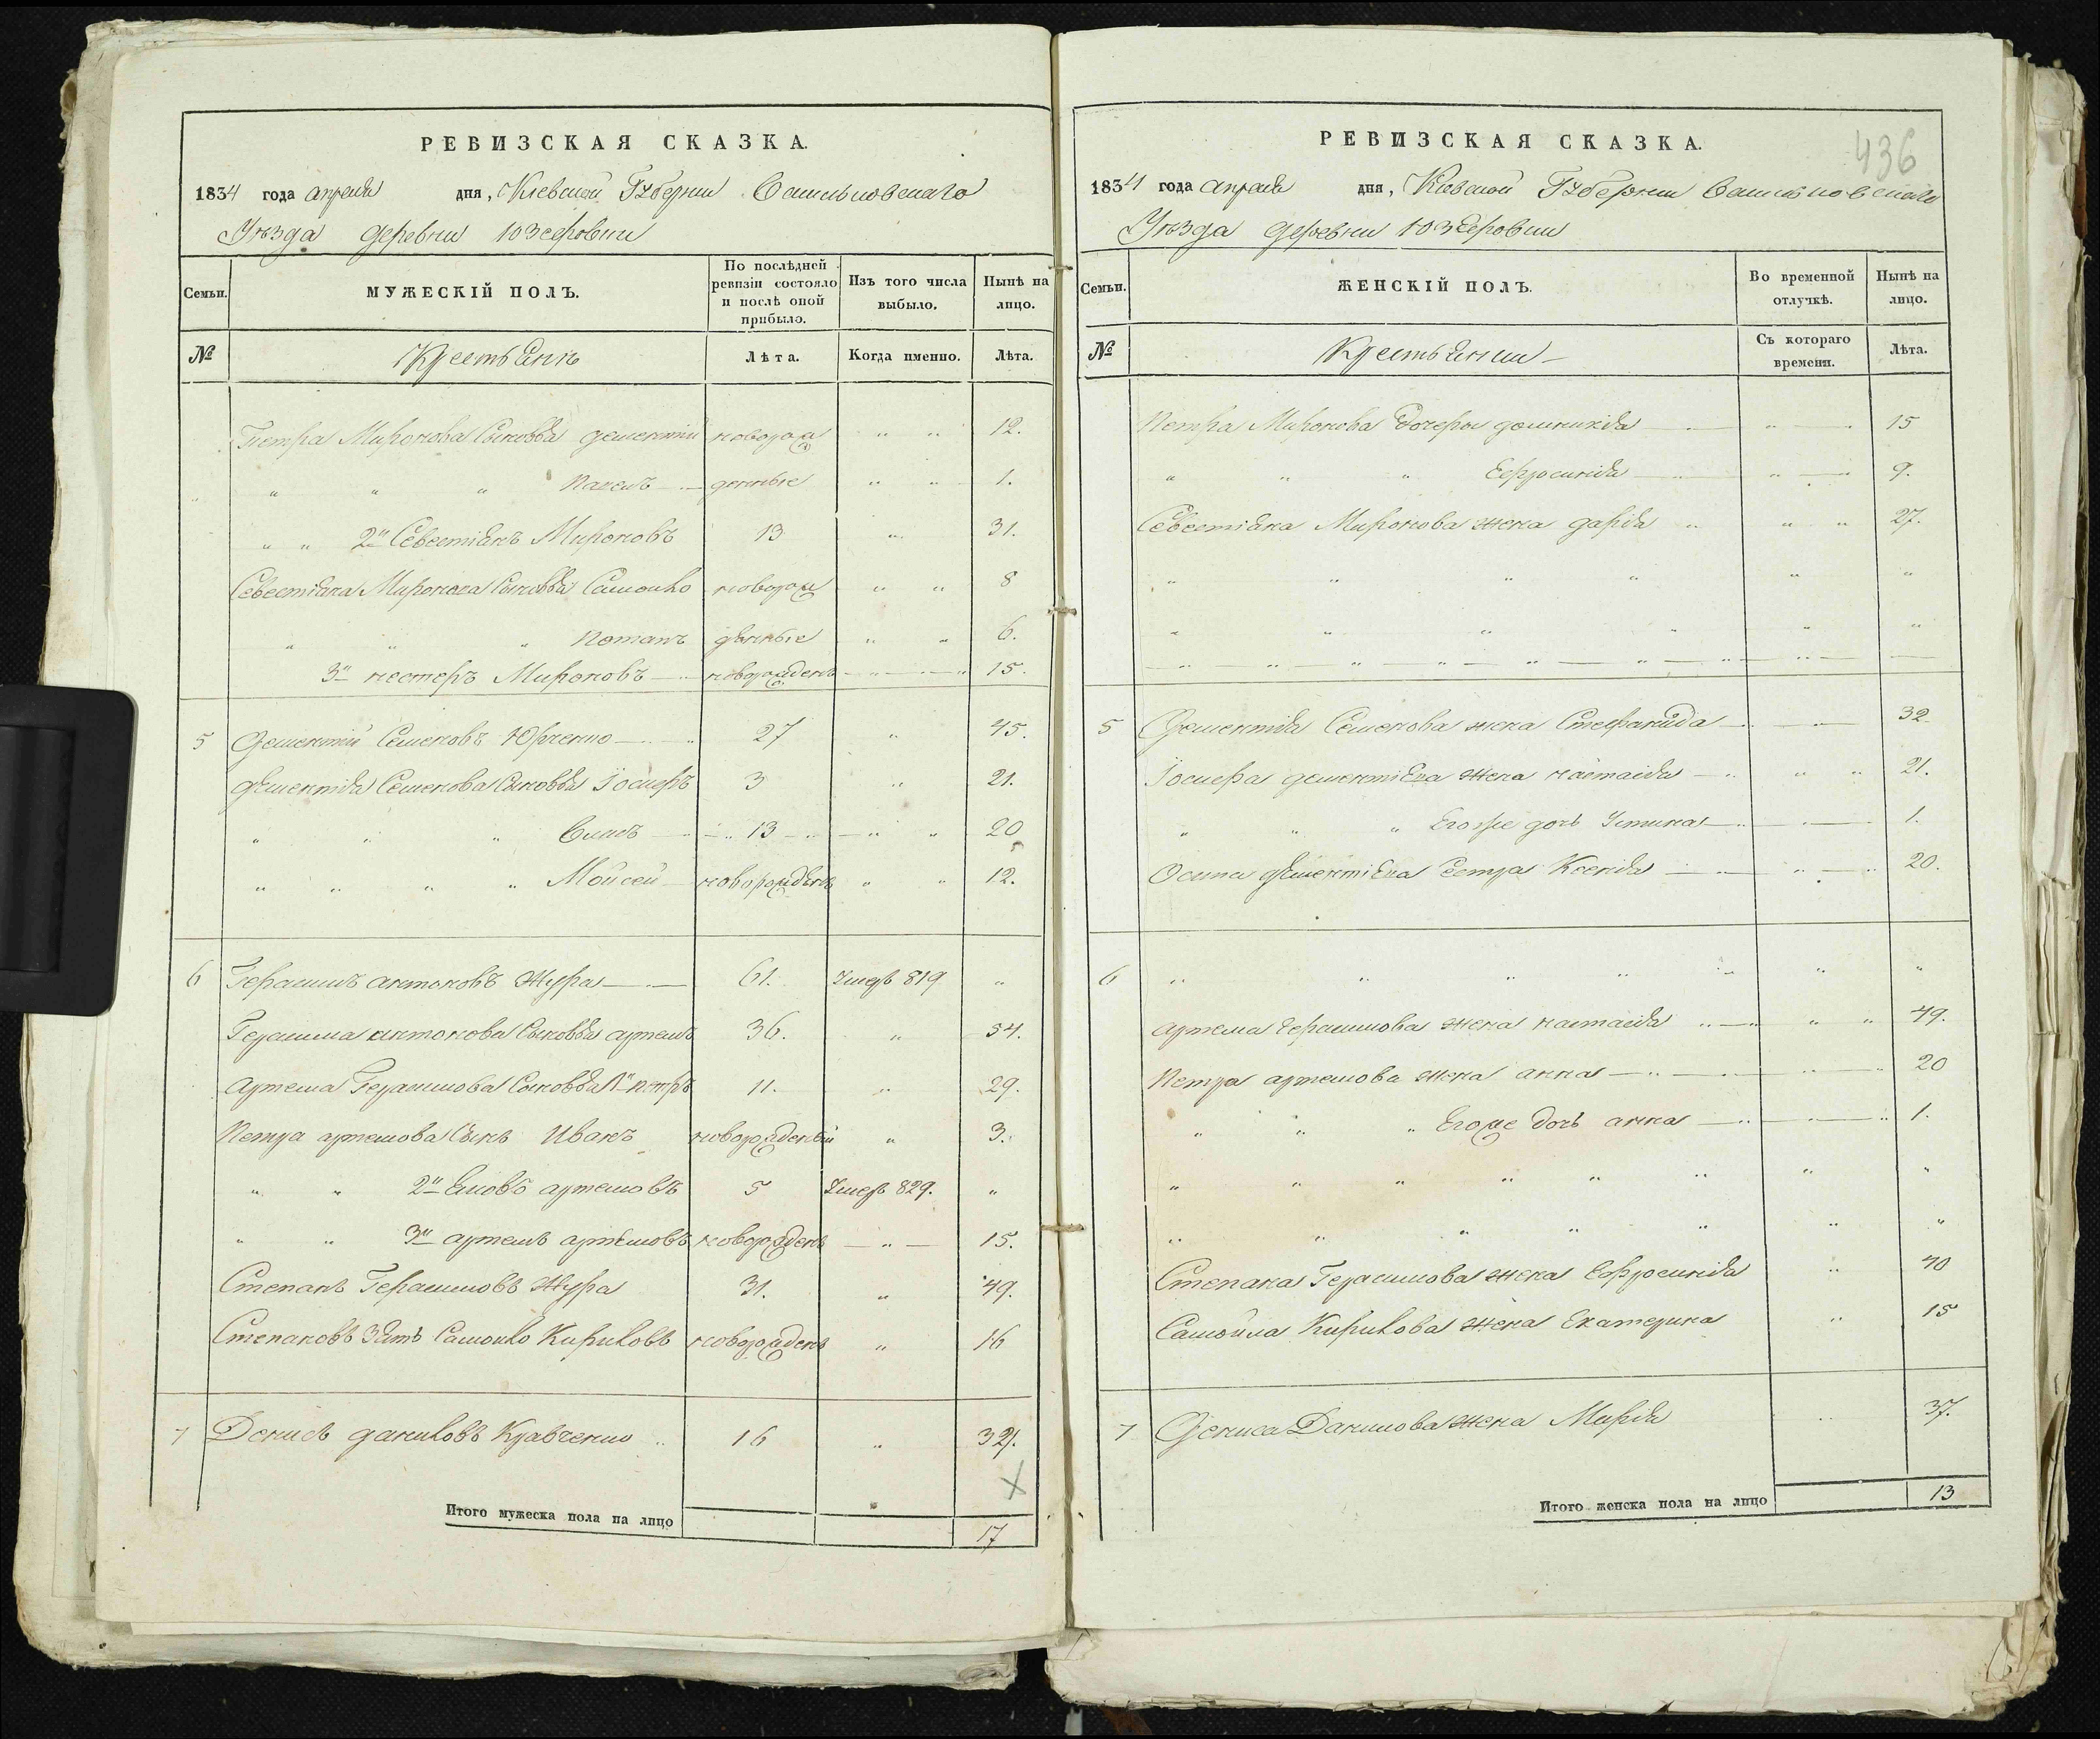 РЕВИЗСКАЯ СКАЗКА.
1834 года апреля дня, Киевской Губернии Васильковскаго
Уѣзда деревни Юзефовки
Семьи.
МУЖЕСКІЙ ПОЛЪ.
По послѣдней ревизіи состояло и послѣ оной прибыло.
Изъ того числа выбыло.
Нынѣ на лицо.
№ Крестьянъ Лѣта. Когда именно. Лѣта.
Петра Миронова Сыновья Дементій новорож 12.
" " " Павелъ денные " " 1.
" " 2й Севестіянъ Мироновъ 13 " 31.
Севестіяна Миронова Сыновья Самойло новорож " " 8
" " " Потапъ дѣнные " " 6.
3й нестеръ Мироновъ новорожденъ " 15.
5 Дементій Семеновъ Юрченко 27 " 45.
Дементія Семенова Сыновья Іосифъ 3 " 21.
" " " 13 " " 20
" " " " Мойсей новорожденъ " " 12.
6 Герасимъ антоновъ Жура 61. Умеръ 819 "
Герасима антонова Сыновья артемъ 36. " 54.
Артема Герасимова Сыновья 1й петръ 11. " 29.
Петра артемова Сынъ Иванъ новорожденый " 3.
" " 2й Яковъ артемовъ 5 Умеръ 829. "
" " 3й артемъ артемовъ новорожденъ " 15.
Степанъ Герасимовъ Жура 31. " 49.
Степановъ Зять Самойло Кириловъ новорожденъ " 16
7 Денисъ даниловъ Кравченко " 16 "
Итого мужеска пола на лицо 17
436
РЕВИЗСКАЯ СКАЗКА.
1834 года апреля дня, Киевской Губернии Васильковскаго
Уѣзда деревни Юзефовки
Семьи.
ЖЕНСКІЙ ПОЛЪ.
Во временной отлучкѣ.
Нынѣ на лицо.
№ Крестьянки Съ котораго времени. Лѣта.
Петра Миронова дочеры домникія " " 15
" " " Ефросинія " " 9.
Севестіяна Миронова жена дарія " " " 27.
" " " " " "
" " " " " "
" " " " " " " "
5 Дементія Семенова жена Стефанида " 32
Іосифа дементіева жена настасія " " " 21.
" " " Егоже дочь Устина " 1.
Осипа дѣментіева Сестра Ксенія " " 20.
6 " " " " " " "
Артема герасимова жена настасія " " " 49.
Петра артемова жена анна " " " 20
" " " Егоже дочь анна " " 1.
" " " " " " " "
" " " " " " "
Степана Герасимова жена Ефросинія " 40
Самойла Кирилова жена Екатерина " 15
7 Дениса Данилова жена Марія " 37.
Итого женска пола на лицо 13